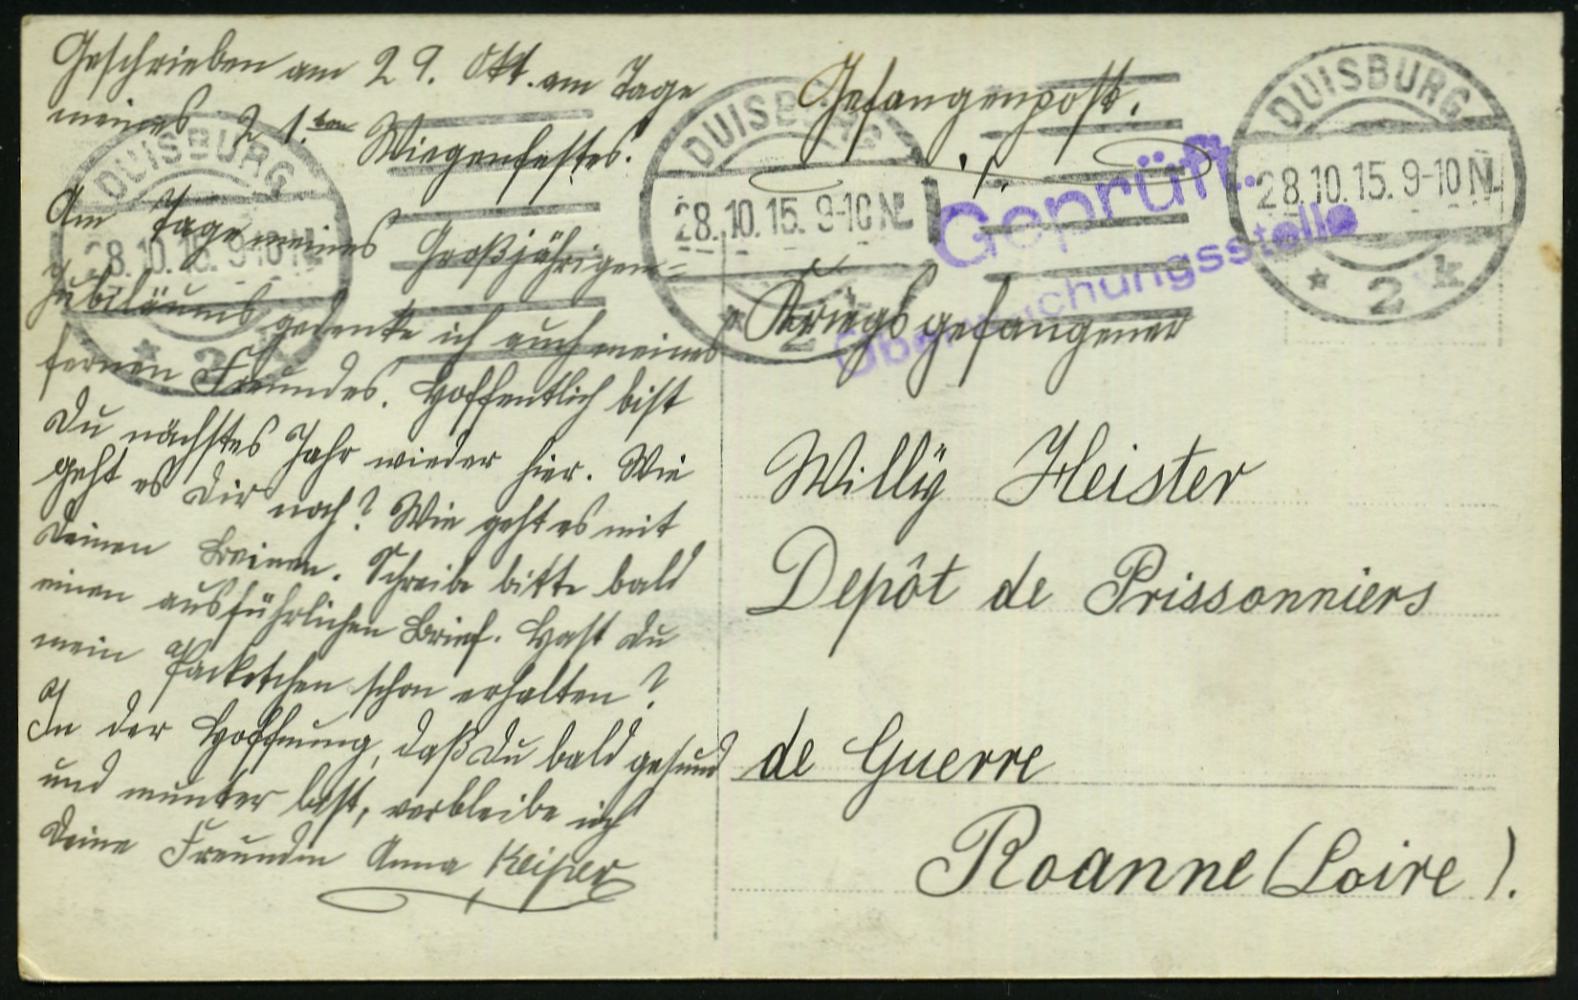 Geschrieben am 29. Okt. am Tage
meines 21.ten Wiegenfestes.
Am Tage meines Großjährigen-
Jubiläums gedenke ich auch meines
fernen Freundes. Hoffentlich bist
Du nächstes Jahr wieder hier. Wie
geht es Dir noch? Wie geht es mit
Deinen Beinen. Schreibe bitte bald
einen ausführlichen Brief. Hast Du
mein Packetchen schon erhalten?
In der Hoffnung, daß Du bald gesund
und munter bist, verbleibe ich
Deine Freundin Anna Keiser
Gefangenpost.
Kriegsgefangener
Willÿ Heister
Depôt de Prissonniers
de Guerre
Roanne (Loire).
Geprüft.
Überwachungsstelle
DUISBURG
28.10.15. 9-10 N.
* 2 k
DUISBURG
28.10.15. 9-10 N.
* 2 k
DUISBURG
28.10.15. 9-10 N.
* 2 k